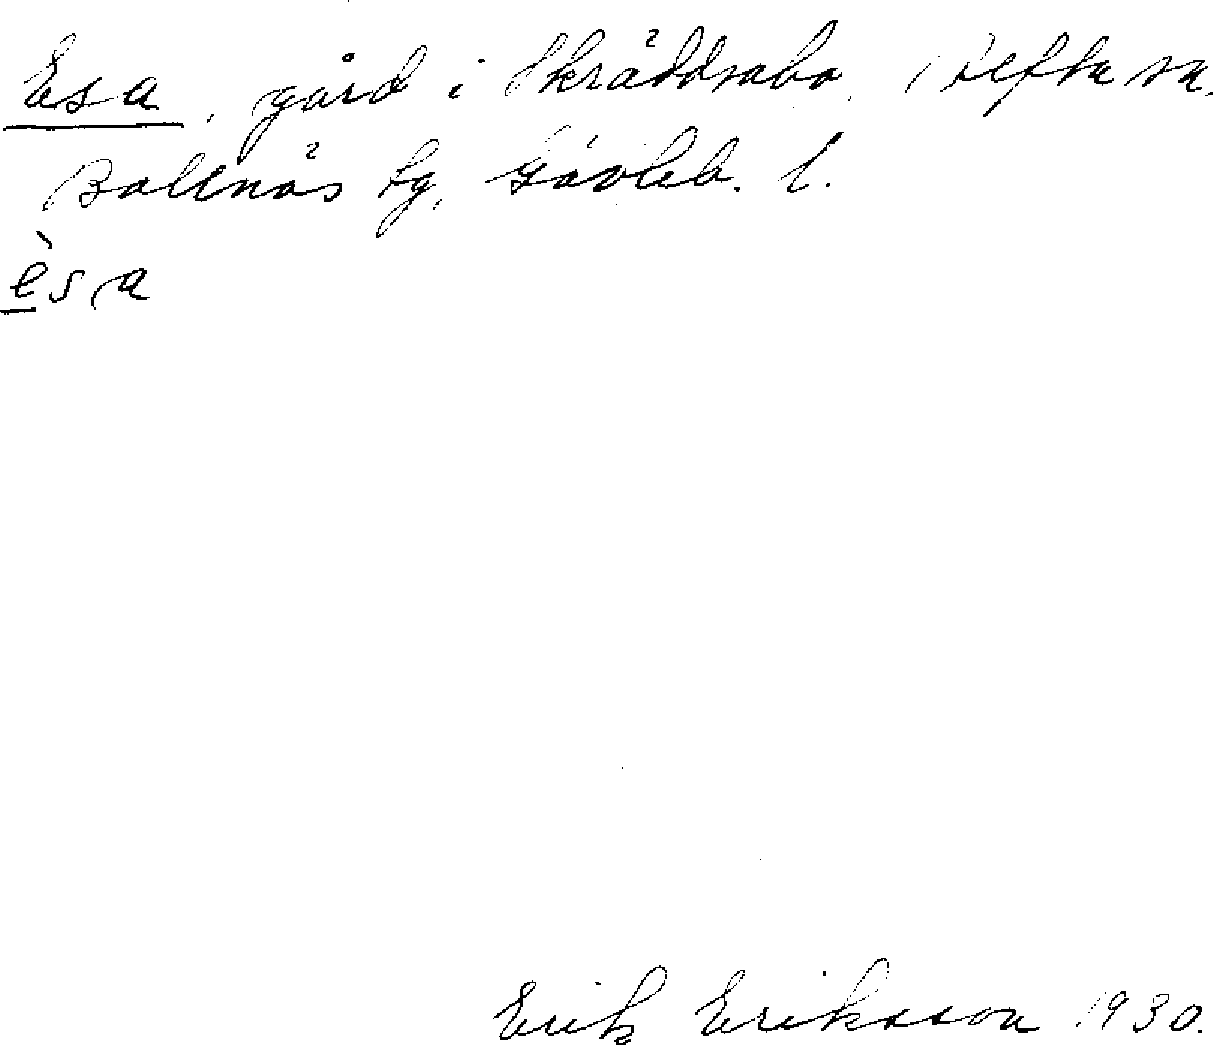 Esa, gård i Skräddrabo, Alfta sn.
Bollnäs tg, Gävleb. l.
èsa
Erik Eriksson 1930.